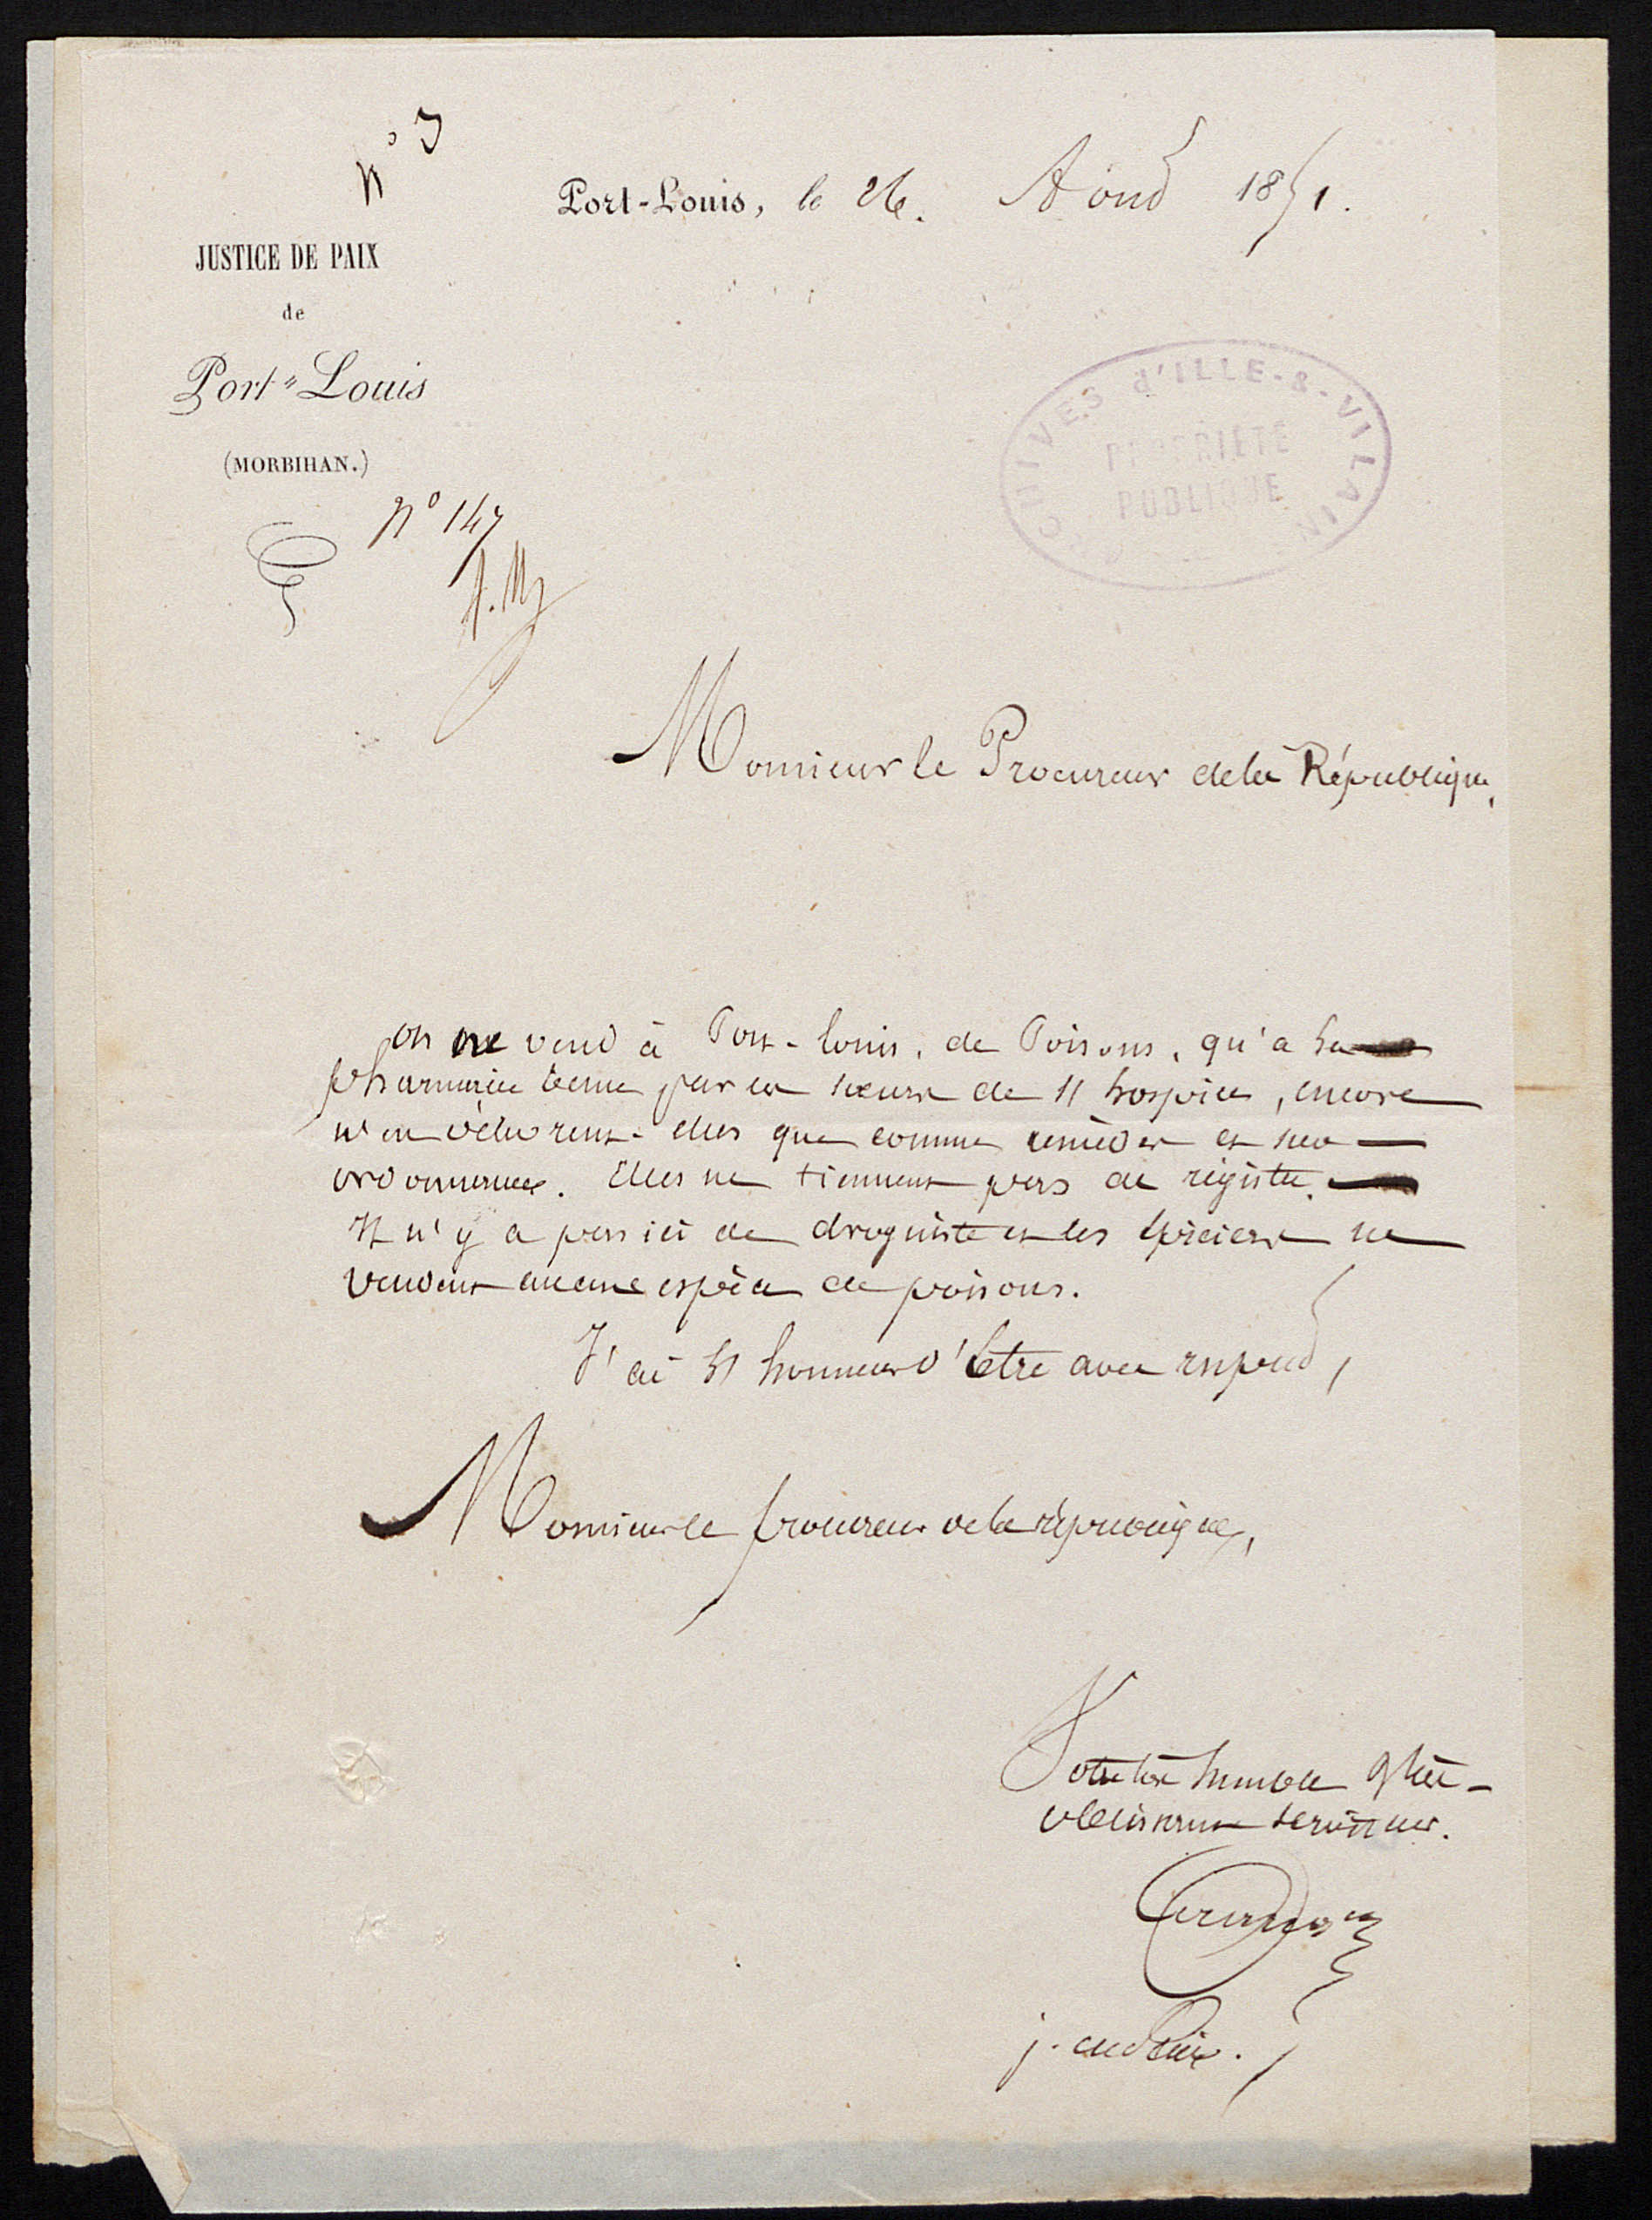 N° 3
Port-Louis, le 26. Aout 1851.
JUSTICE DE PAIX
de
Port-Louis
(MORBIHAN.)
N° 147
ARCHIVES d'ILLE-&-VILAINE
PROPRIÉTÉ
PUBLIQUE
Monsieur le Procureur de la République,
On ne vend à Port-Louis, de Poisons, qu'a la
pharmacie tenue par les soeurs de l'hospice, encore
n'en délivrent-elles que comme remèdes et sur
ordonnance. Elles ne tiennent pas de registre.
Il n'y a pas ici de droguiste et les épiciers ne
vendent aucune espèce de poisons.
J'ai l'honneur d'être avec respect,
Monsieur le procureur de la république,
Votre très humble & très
obéissant serviteur.
j. de Paix.